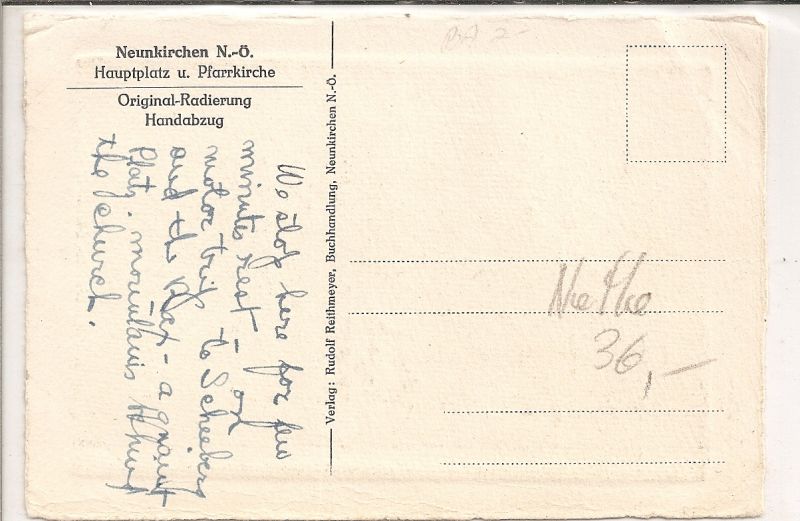 Neunkirchen N.-Ö.
Hauptplatz u. Pfarrkirche
Original-Radierung
Handabzug
We stop here for few
minutes rest - on
motor trip to Scheeberg
and the Rax - a quaint
Platz. mountains behind
the church.
Verlag: Rudolf Reithmeyer, Buchhandlung, Neunkirchen N.-Ö.
2-
36,—